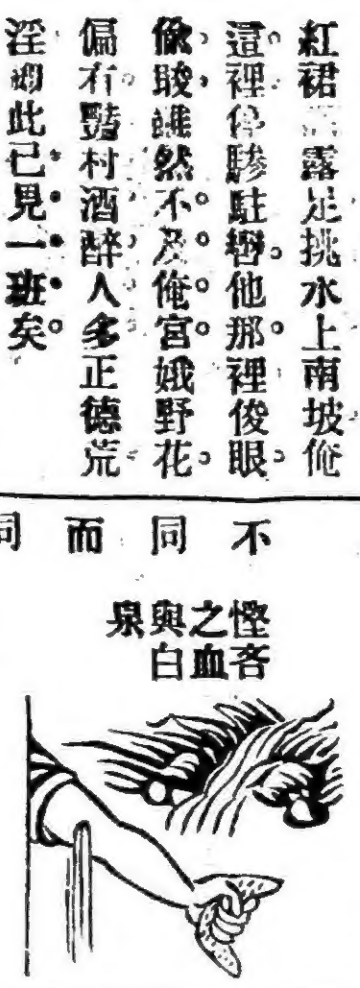 紅裙露足挑水上南坡俺
這裡停驂駐轡他那裡俊眼
偸睃雖然不及俺宮娥野花
偏有豔村酒醉人多正德荒
淫卽此已見一班矣
不同而同
慳吝
之血
與白
泉